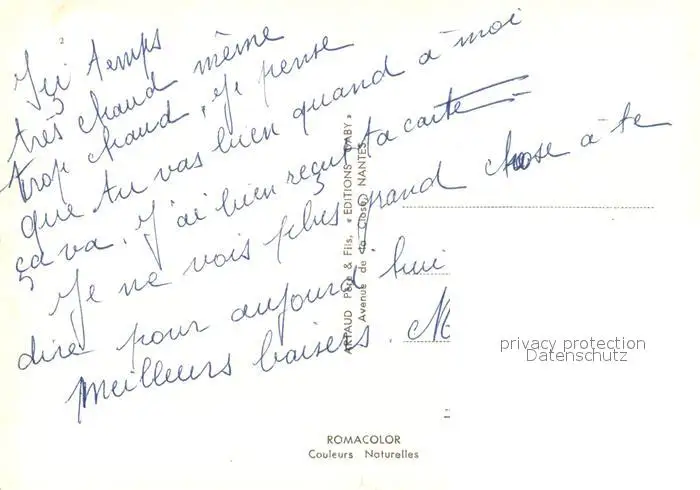 Ici temps
très chaud même
trop chaud. Je pense
que tu vas bien quand à moi
ça va. J'ai bien reçut ta carte
Je ne vois plus grand chose à te
dire pour aujourd'hui
meilleurs baisers. M
ARTAUD Père & Fils, « EDITIONS GABY »
Avenue de la Close, NANTES
privacy protection
Datenschutz
ROMACOLOR
Couleurs Naturelles